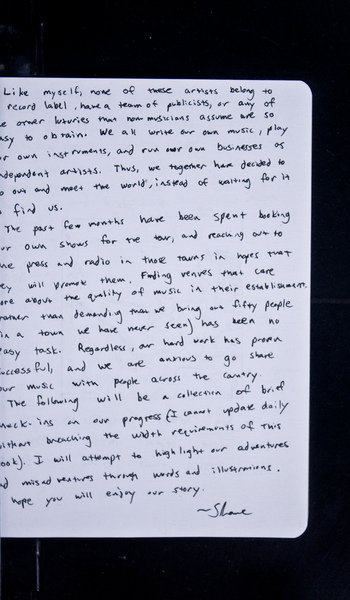 Like myself, none of these artists belong to
record label, have a team of publicists, or any of
e other luxuries that non-musicians assume are so
asy to obtain. We all write our own music, play
ur own instruments, and run our own businesses as
ndependent artists. Thus, we together have decided to
o out and meet the world, instead of waiting for it
o find us.
The past few months have been spent booking
ur own shows for the tour, and reaching out to
he press and radio in those towns in hopes that
ey will promote them. Finding venues that care
ore about the quality of music in their establishment
rather than demanding that we bring our fifty people
in a town we have never seen) has been no
easy task. Regardless, our hard work has proven
uccessful, and we are anxious to go share
our music with people across the country.
The following will be a collection of brief
heck-ins on our progress (I cannot update daily
ithout breaching the width requirements of this
ook). I will attempt to highlight our adventures
nd misadventures through words and illustrations.
hope you will enjoy our story.
~Shane